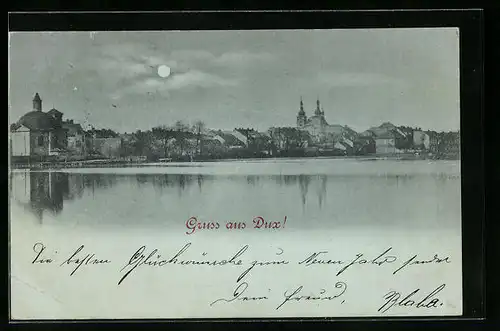 Gruss aus Dux!
Die besten Glückwünsche zum Neuen Jahr sendet
Dein Freund Blaha.